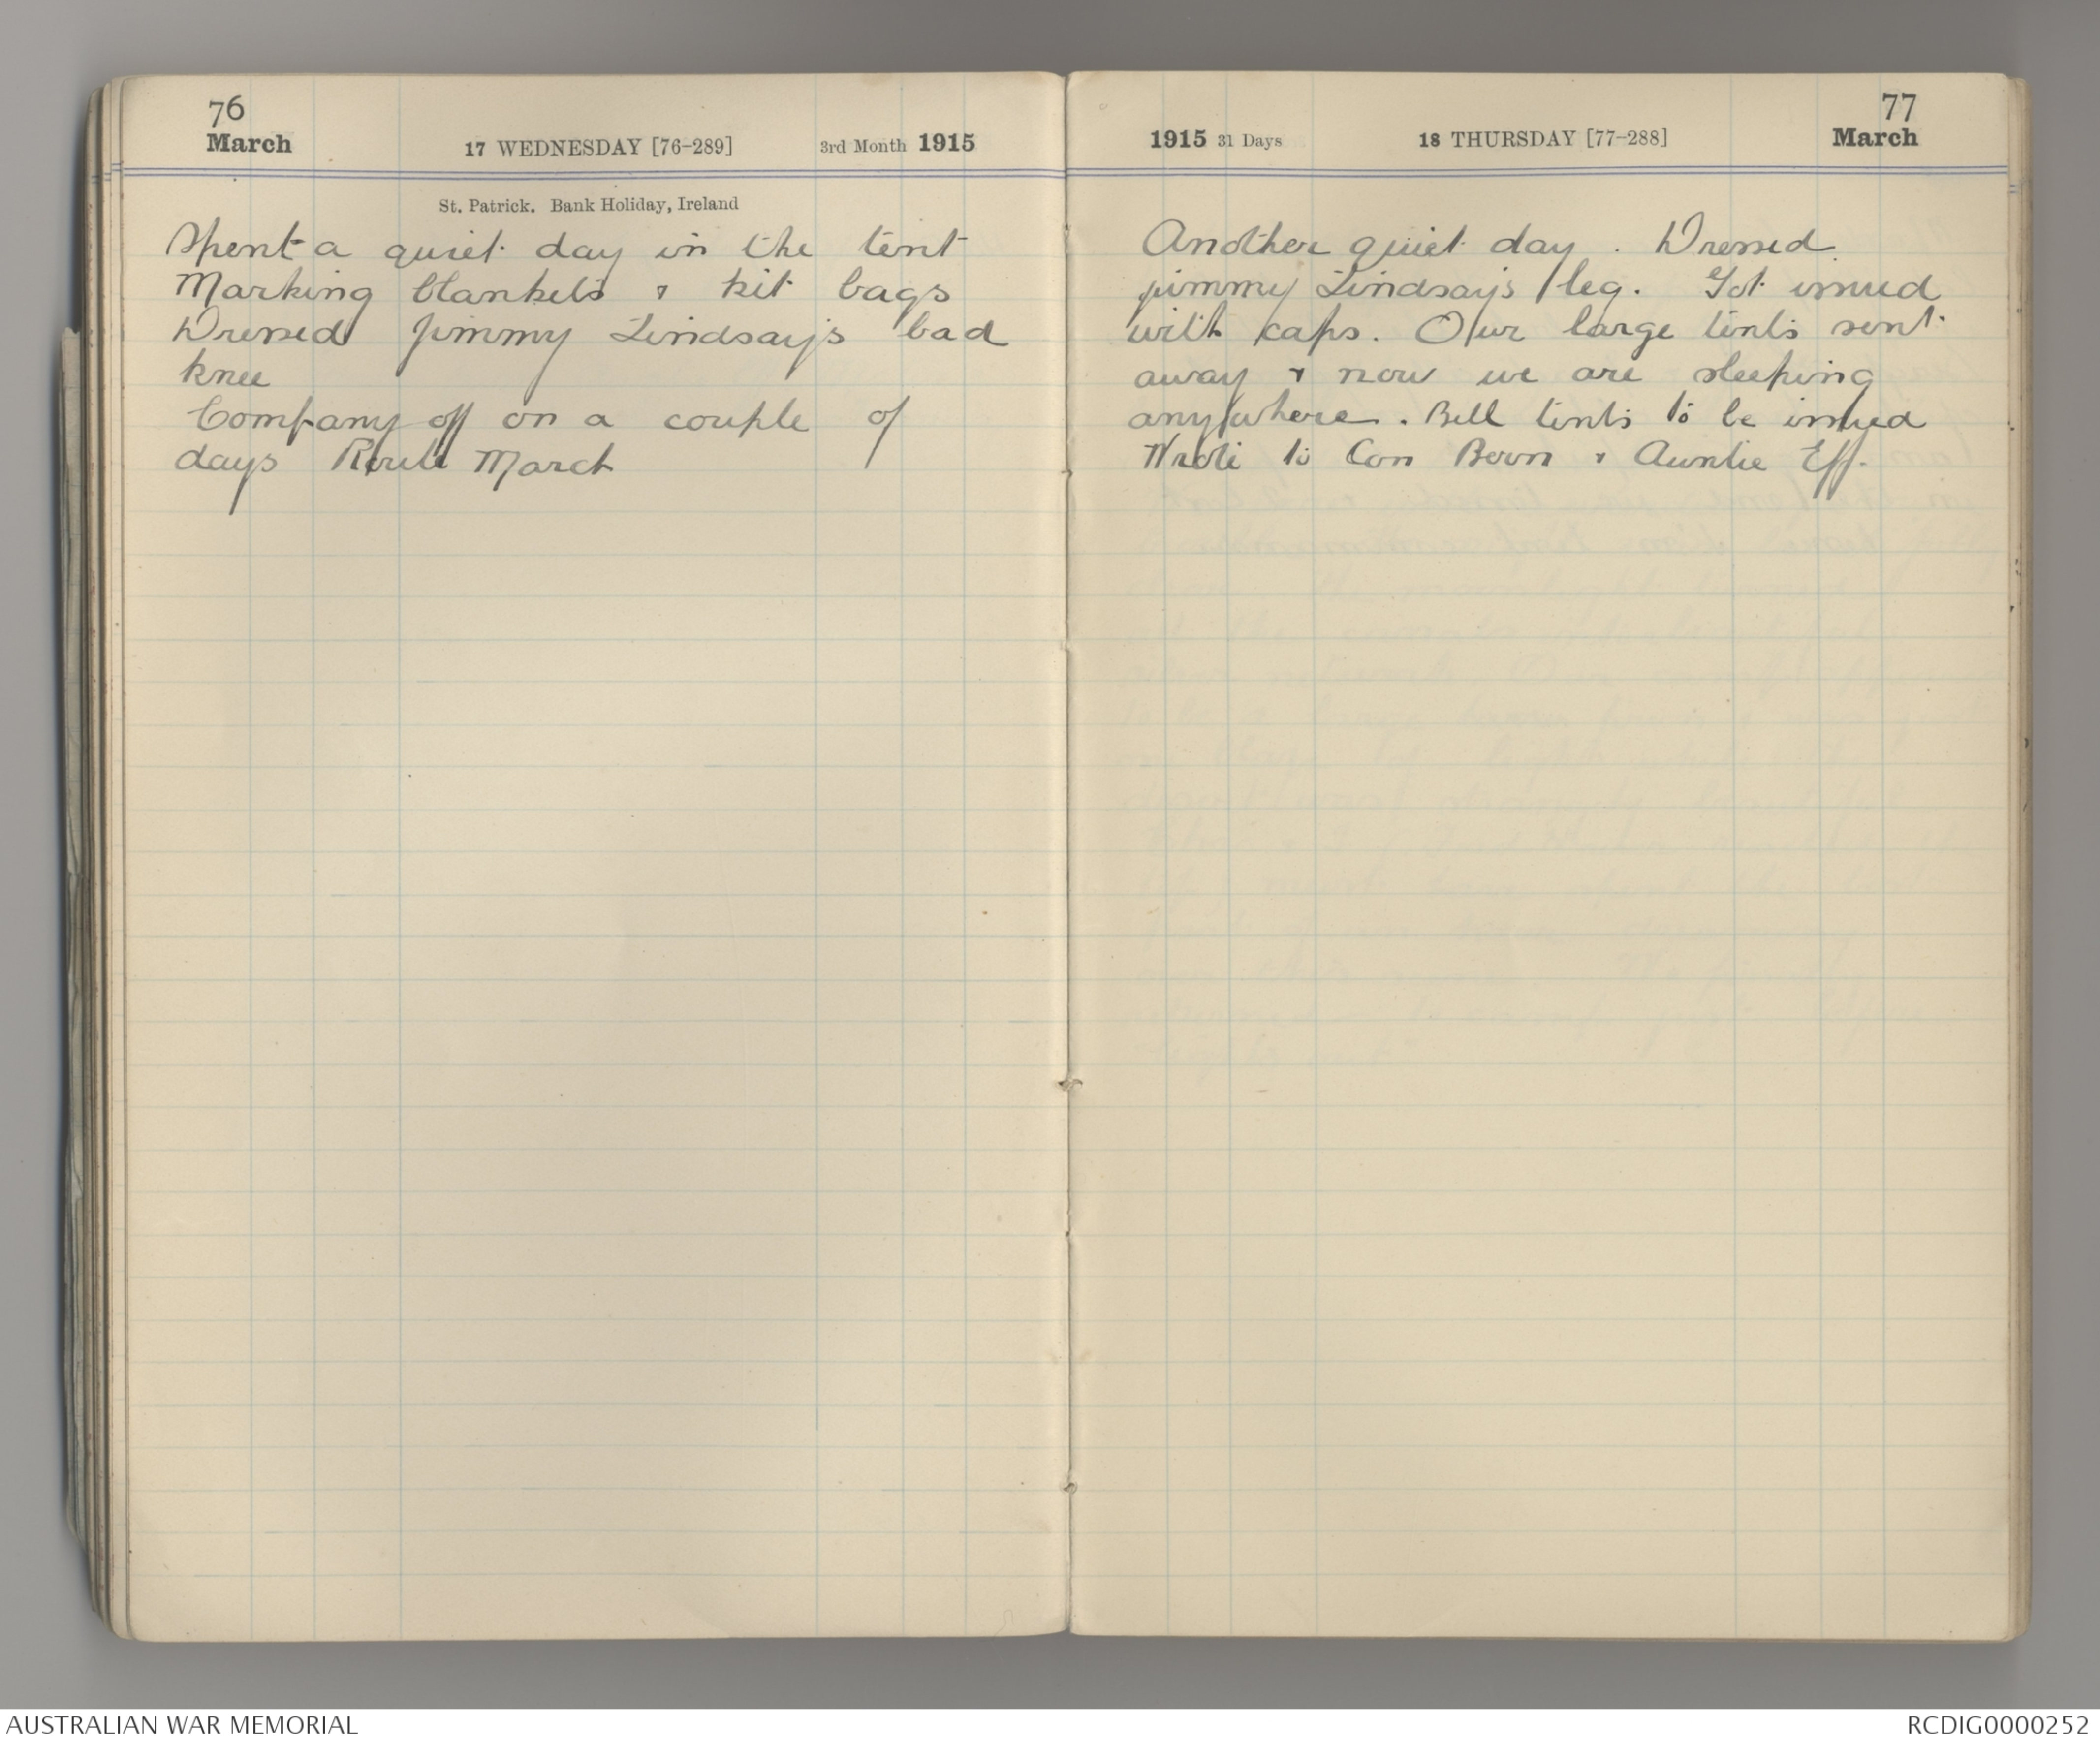 76
March 17 WEDNESDAY [76-289] 3rd Month 1915
St. Patrick. Bank Holiday, Ireland
Spent a quiet day in the tent
Marking blankets & kit bags
Dressed Jimmy Lindsay's bad
knee
Company off on a couple of
days Route March
77
1915 31 Days 18 THURSDAY [77-288] March
Another quiet day. Dressed
jimmy Lindsay's leg. Got issued
with caps. Our large tents sent
away & now we are sleeping
anywhere. Bell tents to be issued
Wrote to Con & Auntie Eff.
AUSTRALIAN WAR MEMORIAL
RCDIG0000252